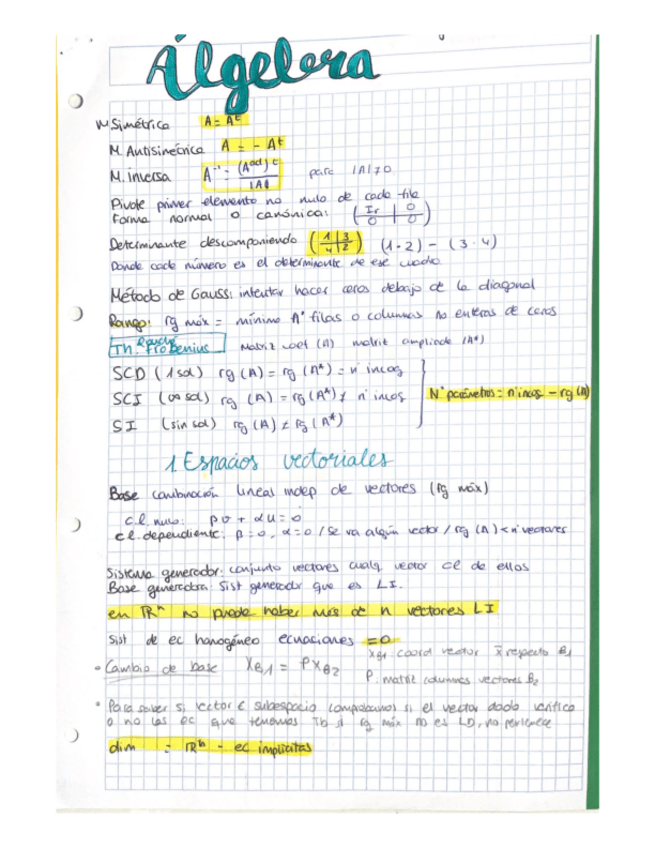 Álgebra
M Simétrica A = Aᵗ
M. Antisimétrica A = - Aᵗ
M. inversa A⁻¹ = (Aᵃᵈ)ᵗ / |A| para |A|≠0
Pivote primer elemento no nulo de cada fila
Forma normal o canónica: (Ir | 0 / 0 | 0)
Determinante descomponiendo (1|3 / 4|2) (1·2) - (3·4)
Donde cada número es el determinante de ese cuadro
Método de Gauss: intentar hacer ceros debajo de la diagonal
Rango: rg máx = mínimo nº filas o columnas no enteras de ceros
Th. Rouché Frobenius Matriz coef (A) matriz ampliada (A*)
SCD (1 sol) rg (A) = rg (A*) = nº incog
SCI (∞ sol) rg (A) = rg (A*) ≠ nº incog
SI (sin sol) rg (A) ≠ rg (A*)
Nº parámetros = nº incog - rg (A)
1. Espacios vectoriales
Base combinación lineal indep de vectores (rg máx)
c.l. nula: βv + αu = 0
c.l. dependiente: β=0, α=0 / se va algún vector / rg (A) < nº vectores
Sistema generador: conjunto vectores cualq vector cl de ellos
Base generadora: Sist generador que es LI.
en ℝⁿ no puede haber más de n vectores LI
Sist de ec homogéneo ecuaciones = 0
• Cambio de base X_B1 = P X_B2
X_B1 coord vector x̄ respecto B1
P. matriz columnas vectores B2
• Para saber si vector ∈ subespacio comprobamos si el vector dado verifica
o no las ec que tenemos Tb si rg máx no es LD, no pertenece
dim = ℝⁿ - ec implícitas